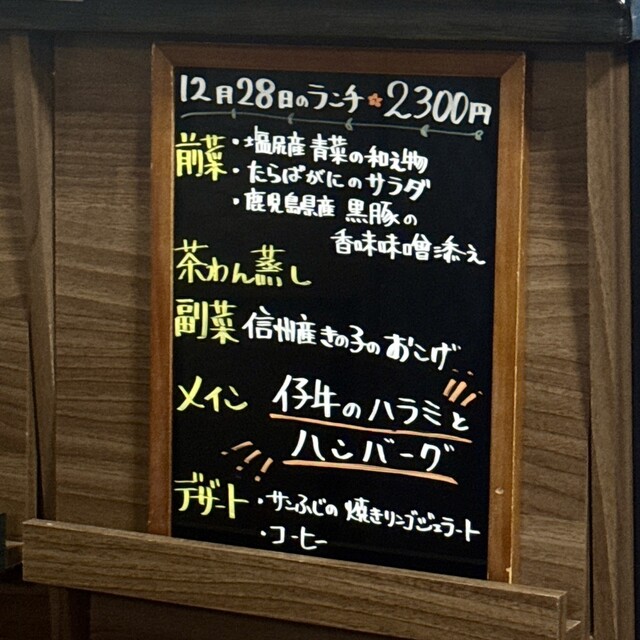 12月28日のランチ 2300円
前菜 ・塩尻産 青菜の和え物
・たらばがにのサラダ
・鹿児島県産 黒豚の
香味味噌添え
茶わん蒸し
副菜 信州産きの子のおこげ
メイン 仔牛のハラミと
ハンバーグ
デザート ・サンふじの 焼きリンゴジェラート
・コーヒー